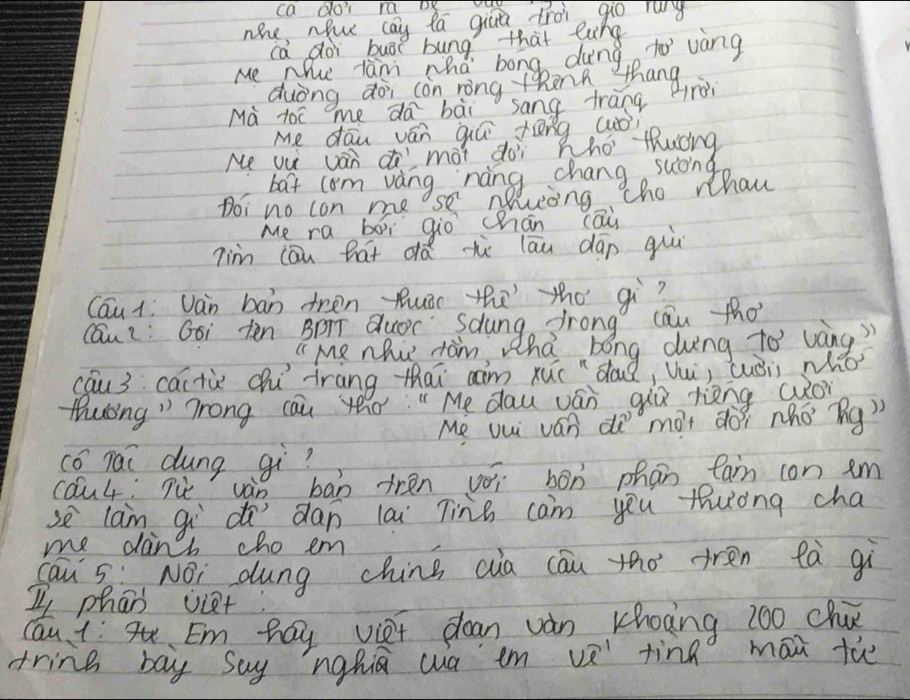 cả đời ra bể vào
nhẹ như cây lá giữa trời gió rung
cả đời buộc bụng thắt lưng
Mẹ như tằm nhả bỗng dưng tơ vàng
đường đời còn rộng thênh thang
Mà tóc mẹ đã bời sang trắng trời
Mẹ đau vẫn giữ tiếng cười
Mẹ vui vẫn để một đời nhớ thương
bát cơm vàng nắng chang sương
Đói no con mẹ sẻ nhường cho nhau
Mẹ ra bới gió chân cầu
Tìm câu hát đã từ lâu dập gùi
Câu 1: Văn bản trên thuộc thể thơ gì?
Câu 2: Gọi tên BPTT được sdụng trong câu thơ
"Mẹ như tằm nhả bỗng dưng tơ vàng"
câu 3: các từ chỉ trạng thái cảm xúc "đau, vui, cười, nhớ
thương" Trong câu thơ: "Mẹ đau vẫn giữ tiếng cười
Mẹ vui vẫn để một đời nhớ thg"
có tác dụng gì?
câu 4: Từ văn bản trên với bổn phận làm con em
sẽ làm gì để đáp lại Tình cảm yêu thương cha
mẹ dành cho em
câu 5: Nội dung chính của câu thơ trên là gì
II, phần viết:
Câu 1: Em hãy viết đoạn văn khoảng 200 chữ
trình bày suy nghĩ của em về tình mẫu tử